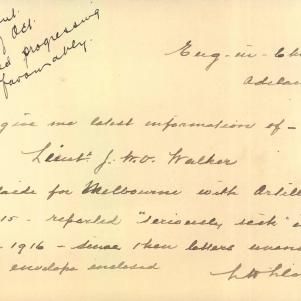 Oct.
progressing
favourably.
Eng-in-Ch
Adelai
give me latest information of -
Lieut. J. W. O. Walker
aide for Melbourne with Artill
15 - reported "seriously sick"
1916 - since then letters
envelope enclosed